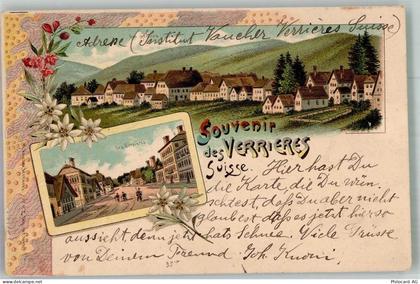 Adresse (Institut Vaucher Verrières Suisse)
Souvenir
des Verrières
Suisse.
Les Verrières
Hier hast Du
die Karte, die Du wün-
schtest daß Du aber nicht
glaubest daß es jetzt hier so
aussieht, denn jetzt hats Schnee. Viele Grüsse
von Deinem Freund Joh.
PHILATELIC-AG | Philacard.com